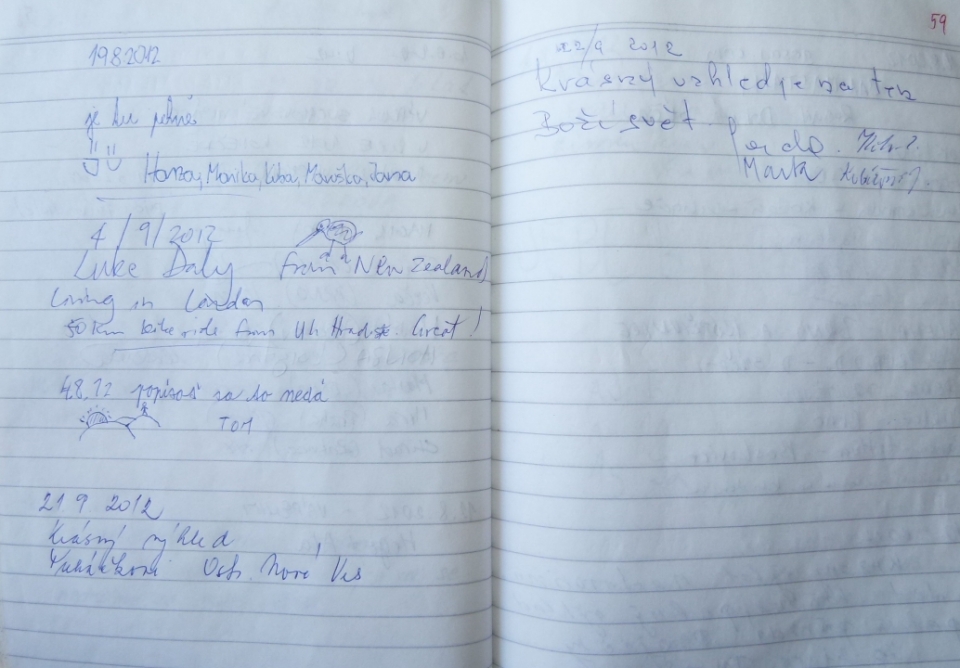 19.8.2012
je tu pěkně
Honza, Monika, Liba, Maruška, Jana
4/9/2012
Luke Daly from New Zealand
Living in London
50 km bike ride from Uh Hradiste. Great!
4.8.12 popisat sa to nedá
TOM
21 9. 2012
Krásný výhled
Ostr. Nová Ves
59
22/9 2012
Krásný vzhled je na ten
Boží svět.